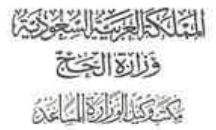 المملكة العربية السعودية
وزارة الحج
مكتب وكيل الوزارة المساعد